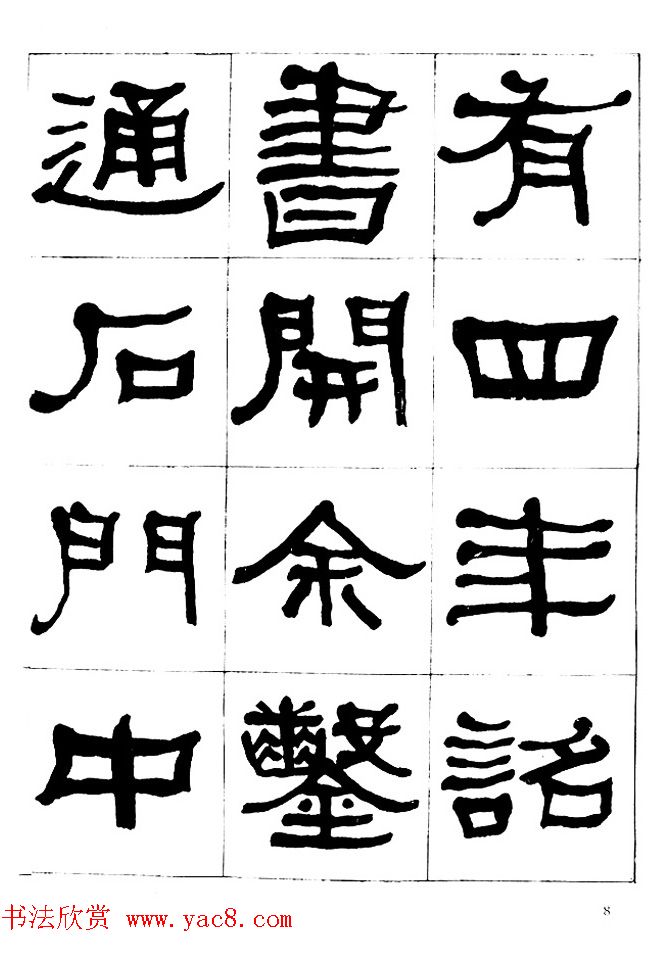 有四年詔
書開余鑿
通石門中
8
书法欣赏 www.yac8.com